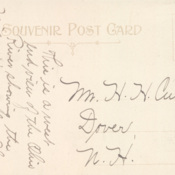 SOUVENIR POST CARD
This is a west
end view of the Ohio
River showing the
Mr. H. H.
Dover,
N. H.